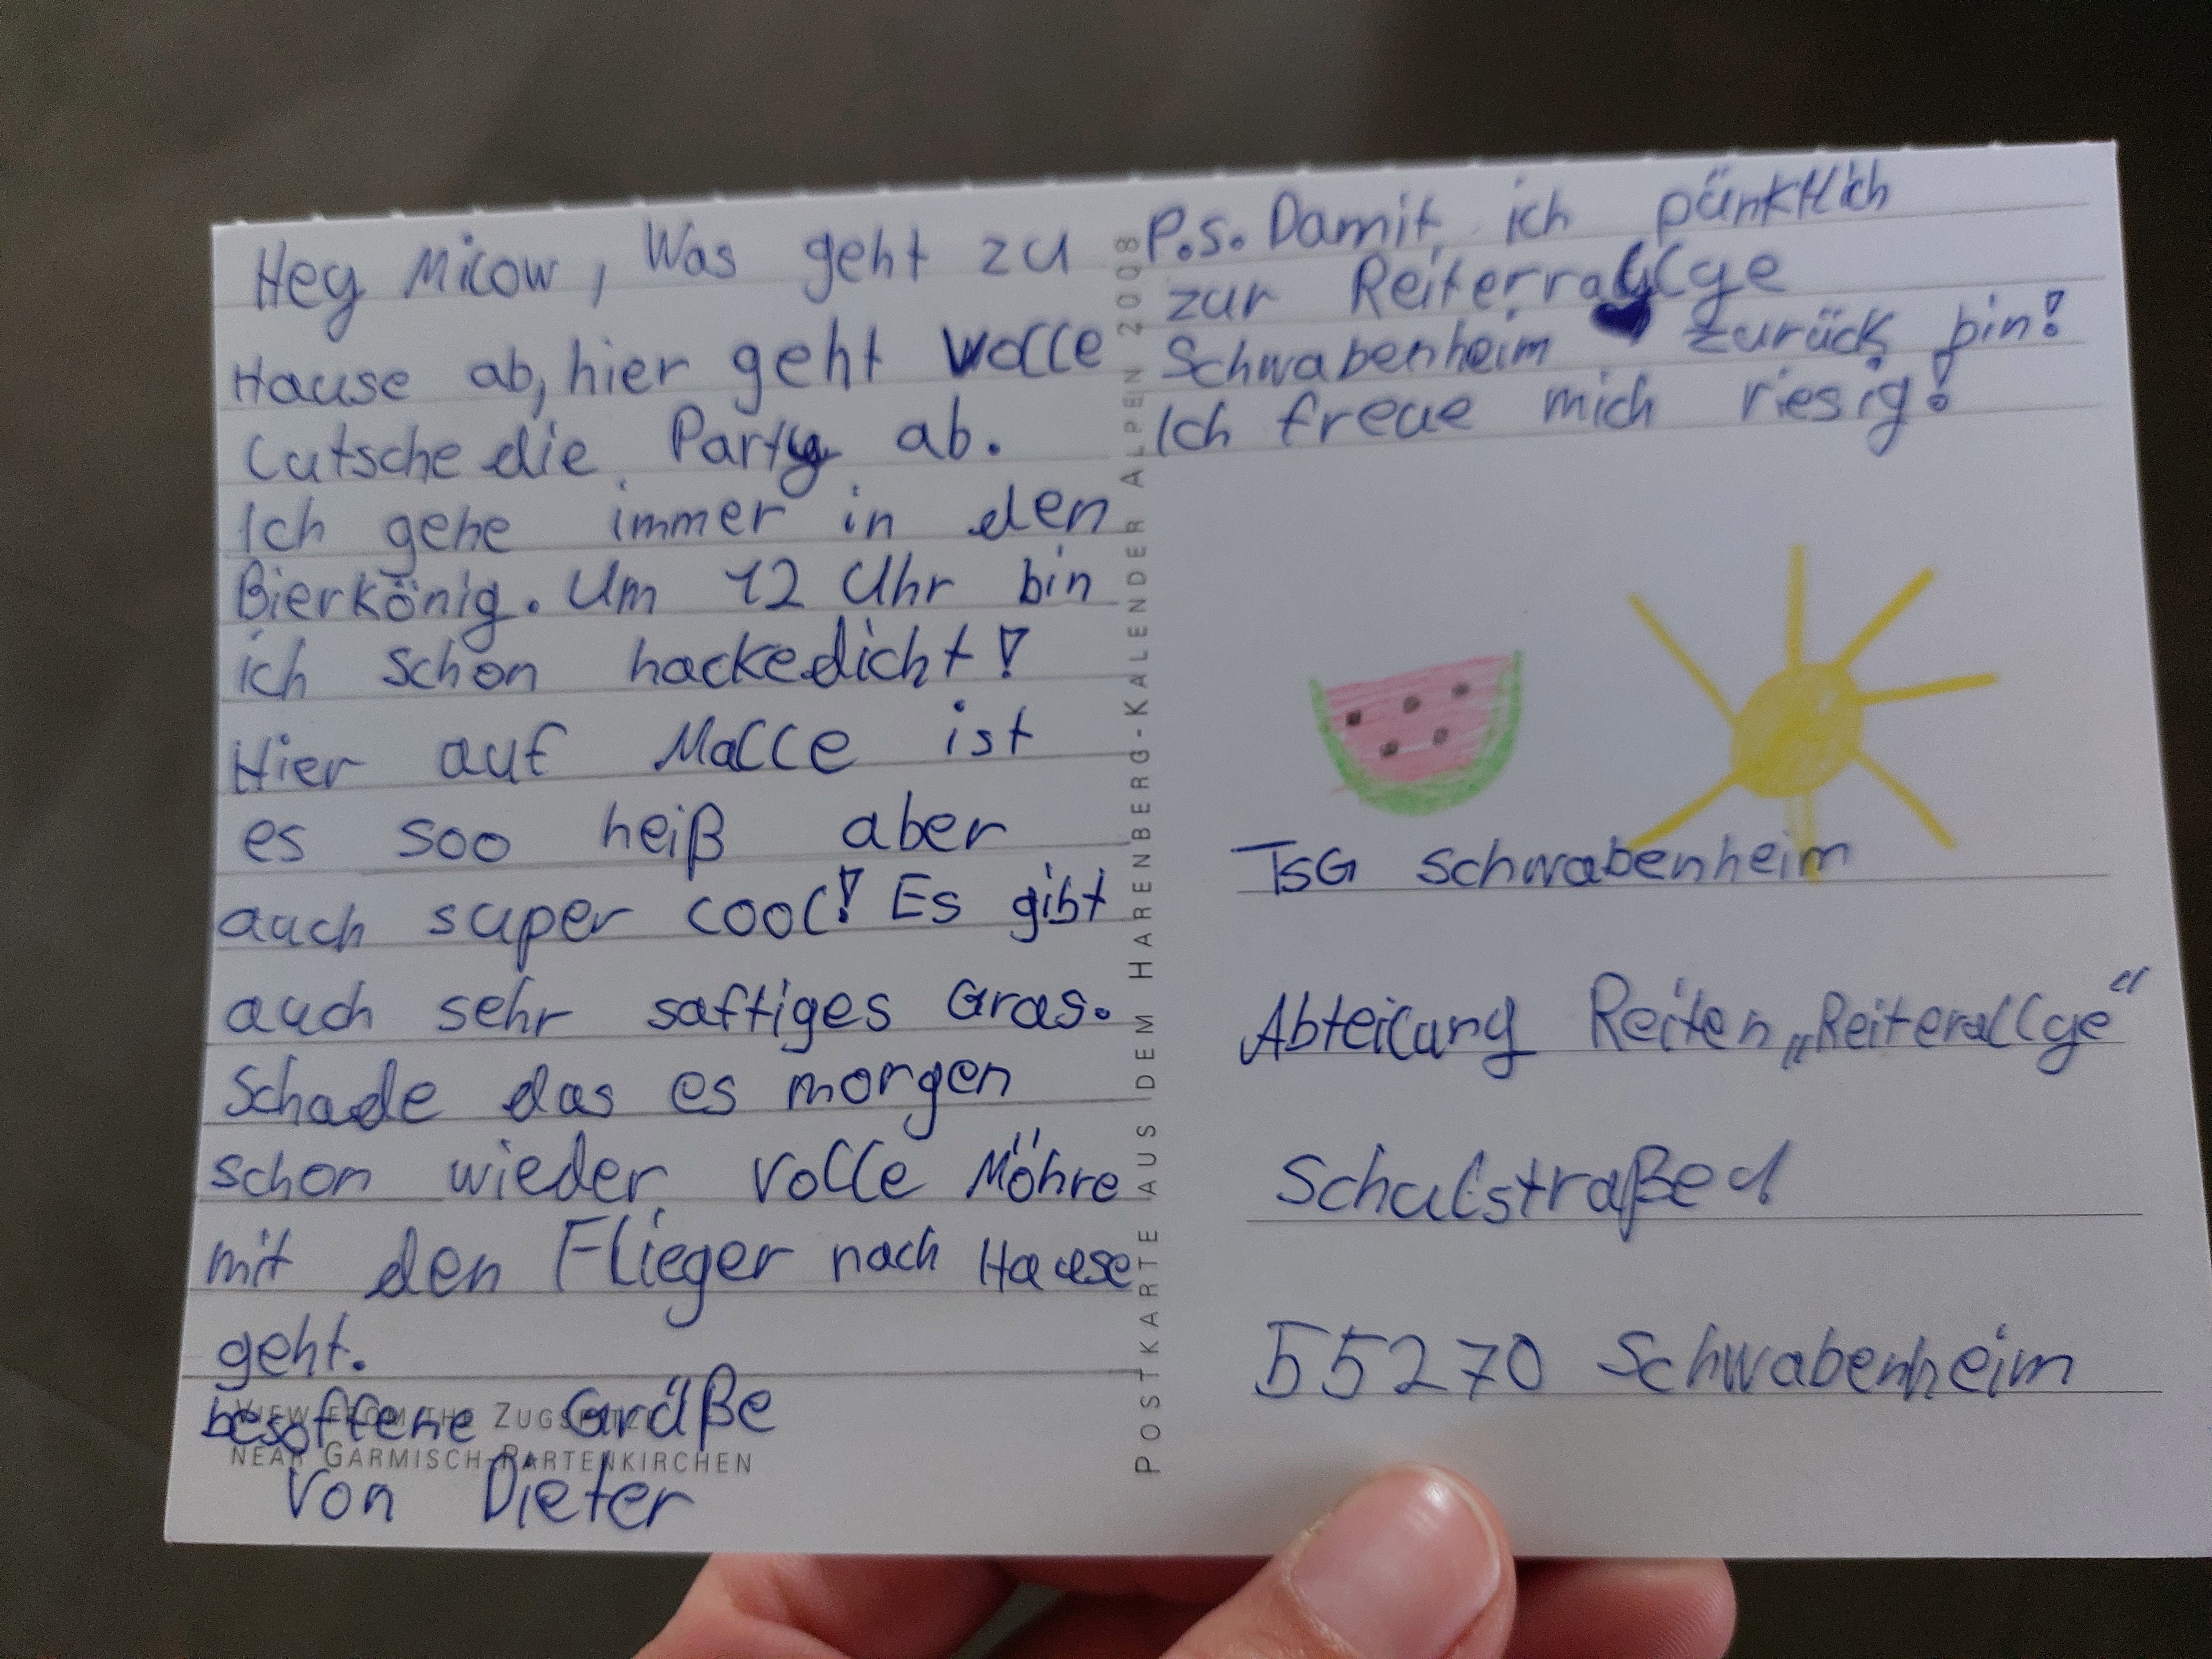 Hey Milow, Was geht zu
Hause ab, hier geht volle
Lutsche die Party ab.
Ich gehe immer in den
Bierkönig. Um 12 Uhr bin
ich schon hackedicht!
Hier auf Malle ist
es soo heiß aber
auch super cool! Es gibt
auch sehr saftiges Gras.
Schade das es morgen
schon wieder volle Möhre
mit den Flieger nach Hause
geht.
besoffene Grüße
von Dieter
VIEW FROM THE ZUGSPITZE
NEAR GARMISCH-PARTENKIRCHEN
POSTKARTE AUS DEM HARENBERG-KALENDER ALPEN 2008
P.s. Damit ich pünktlich
zur Reiterrallye
Schwabenheim zurück bin!
Ich freue mich riesig!
TSG Schwabenheim
Abteilung Reiten „Reiterallye“
Schulstraße
55270 Schwabenheim